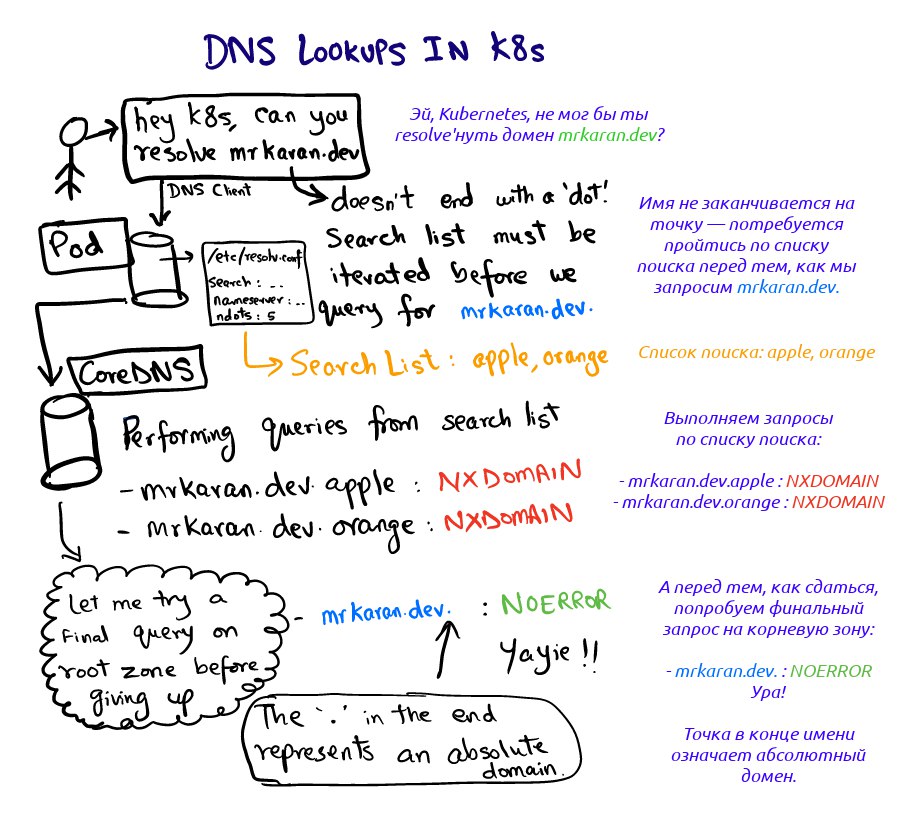 DNS LOOKUPS IN K8s
hey k8s, can you
resolve mrkaran.dev
Эй, Kubernetes, не мог бы ты
resolve'нуть домен mrkaran.dev?
DNS Client
Pod
/etc/resolv.conf
search : ...
nameserver : ..
ndots : 5
doesn't end with a 'dot!
Search list must be
iterated before we
query for mrkaran.dev.
Имя не заканчивается на
точку — потребуется
пройтись по списку
поиска перед тем, как мы
запросим mrkaran.dev.
Search List : apple, orange
Список поиска: apple, orange
CoreDNS
Performing queries from search list
- mrkaran.dev.apple : NXDOMAIN
- mrkaran.dev.orange : NXDOMAIN
Выполняем запросы
по списку поиска:
- mrkaran.dev.apple : NXDOMAIN
- mrkaran.dev.orange : NXDOMAIN
Let me try a
final query on
root zone before
giving up
- mrkaran.dev. : NOERROR
Yayie !!
The '.' in the end
represents an absolute
domain.
А перед тем, как сдаться,
попробуем финальный
запрос на корневую зону:
- mrkaran.dev. : NOERROR
Ура!
Точка в конце имени
означает абсолютный
домен.